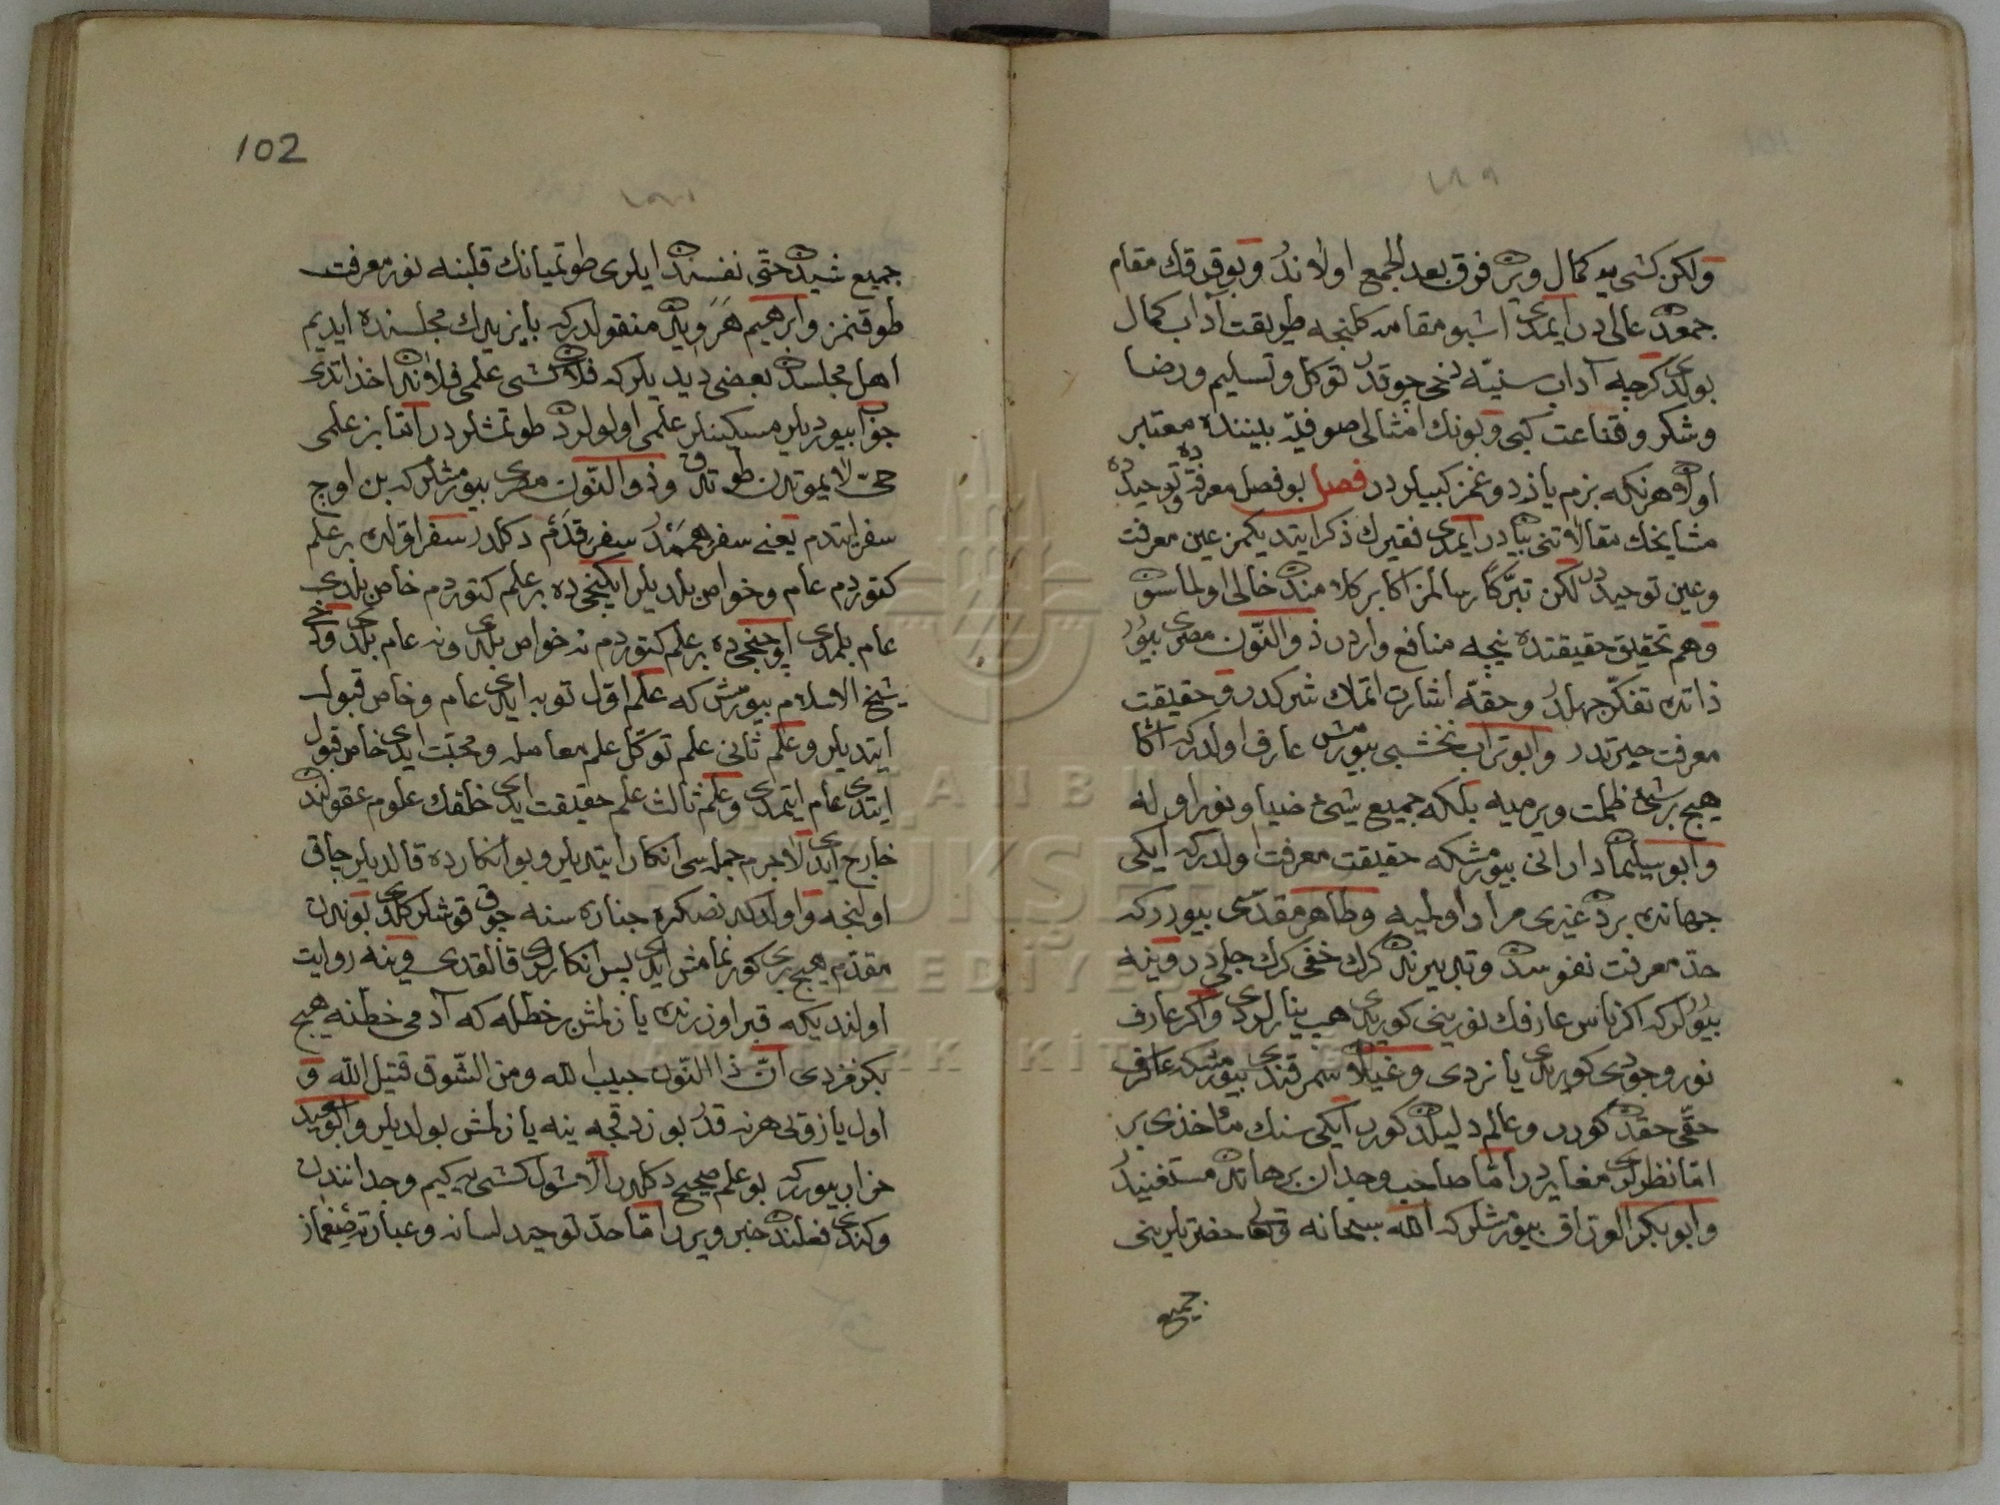 ١٨٩
ولكن كشی یه كمال ویرن فرق بعد الجمع اولاندر و بو فرقك مقام
جمعدن عالی در ایمدی اشبو مقامه كلنجه طریقت آداب كمال
بولدی كرچه آداب سنیّه دخی چوقدر توكل و تسلیم و رضا
و شكر و قناعت كبی و بونك امثالی صوفیّه بیننده معتبر
اولان هرنكه بزم یازدوغمز كبیلردر فصل بو فصل معرفته و توحیده
مشایخك مقالاتنی بیاندر ایمدی فقیرك ذكر ایتدیكمز عین معرفت
و عین توحیددر لكن تبرّكاً رسالمز اكابر كلامندن خالی اولماسون
و هم تحقیق حقیقتده نیچه منافع واردر ذو النّون مصری بیورر
ذاتده تفكّر جهلدر و حقّه اشارت اتمك شركدر و حقیقت
معرفت حیرتدر و ابو تراب نخشبی بیورمش عارف اولدركه اكا
هیچ بر شیء ظلمت ویرمیه بلكه جمیع شیء ضیا و نور اوله
و ابو سیلمان دارانی بیورمشكه حقیقت معرفت اولدركه ایكی
جهانده بردن غیری مراد اولمیه و طاهر مقدّسی بیورركه
حدّ معرفت نفوسدن و تدبیرندن كرك خفی كرك جلی در و ینه
بیوررلركه اكر ناس عارفك نورینی كوریدی هب ینارلردی و اكر عارف
نور وجودی كوریدی یانردی و غیلان سمرقندی بیورمشكه عارف
حقّی حقدن كورر و عالم دلیلدن كورر ایكی سنك مأخذی بر
امّا نظرلری مغایردر امّا صاحب وجدان برهاندن مستغنیدر
و ابو بكر الورّاق بیورمشلركه الله سبحانه و تعالی حضرتلرینی
جمیع
102
جمیع شیدن حتّی نفسندن ایلری طوتمیانك قلبنه نور معرفت
طوقنمز و ابرهیم هَرَوِیدن منقولدركه بایزیدك مجلسنده ایدیم
اهل مجلسدن بعضی دیدیلركه فلان كشی علمی فلاندن اخذ اتدی
جواب بیوردیلر مسكینلر علمی اولولردن طوتمشلردر امّا بز علمی
حیّ لا یموتدن طوتدق و ذو النّون مصری بیورمشلركه بن اوچ
سفر ایتدم یعنی سفر همَمْدُر سفر قدَم دكلدر سفر اوّلده بر علم
كتوردم عام و خواص بلدیلر ایكنجیده بر علم كتوردم خاص بلدی
عام بلمدی اوچنجیده بر علم كتوردم نه خواص بلدی و نه عام بلدی و دخی
شیخ الاسلام بیورمش كه علم اوّل توبه ایدی عام و خاص قبول
ایتدیلر و علم ثانی علم توكّل علم معامله و محبّت ایدی خاص قبول
ایتدی عام ایتمدی و علم ثالث علم حقیقت ایدی خلقك علوم عقولندن
خارج ایدی لاجرم جمله سی انكار ایتدیلر و بو انكارده قالدیلر چاق
اولنجه و اولدكدنصكره جنازه سنه چوق قوشلر كلدی بوندن
مقدّم هیچ بری كورنمامش ایدی پس انكارلری قالقدی و ینه روایت
اولندیكه قبر اوزرنده یازلمش بر خطله كه آدمی خطنه هیچ
بكزمزدی انّ ذا النّون حبیب الله و من الشّوق قتیل الله و
اول یازوئی هر نه قدر بوزدقجه ینه یازلمش بولدیلر و ابو عید
خزاب بیورركه بو علم صحیح دكلدر الّا شول كشی یه كیم وجداننده
و كندی فعلندن خبر ویرر امّا حدّ توحید لسانه و عبارته صغماز